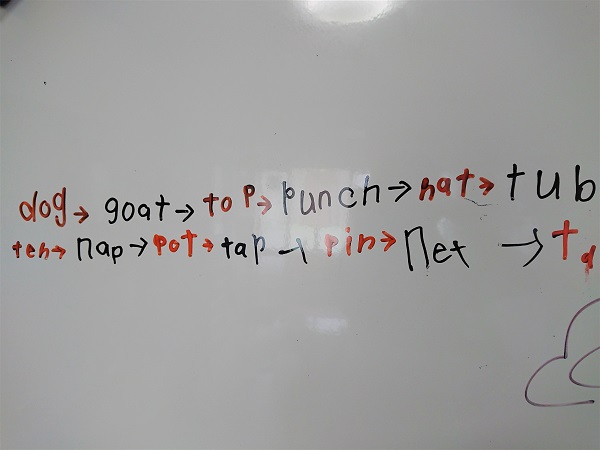 dog → goat → top → punch → hat → tub
ten → nap → pot → tap → pin → net →